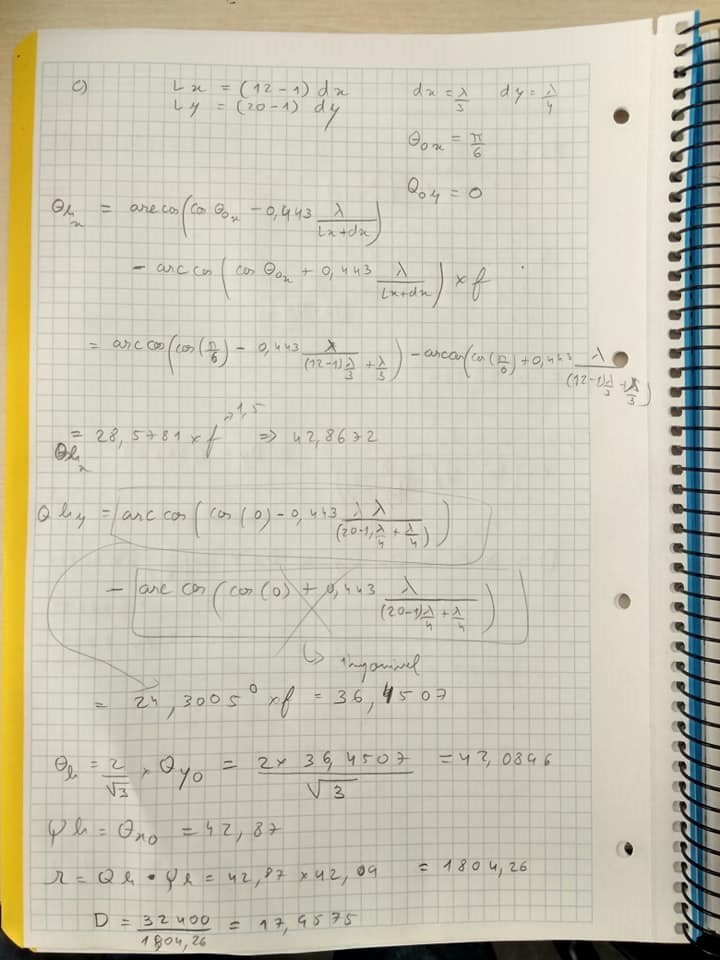 c) Lx = (12-1) dx dx = λ/3 dy = λ/4
Ly = (20-1) dy
θ0x = π/6
θ0y = 0
θhx = arccos(cos θ0x - 0,443 λ/(Lx+dx))
- arccos(cos θ0x + 0,443 λ/(Lx+dx)) × f
= arccos(cos(π/6) - 0,443 λ/((12-1)λ/3 + λ/3)) - arccos(cos(π/6) + 0,443 λ/((12-1)λ/3 + λ/3))
→ 1,5
θhx = 28,5781 × f => 42,8672
θhy = arccos(cos(0) - 0,443 λ λ/((20-1)λ/4 + λ/4))
- arc cos(cos(0) + 0,443 λ/((20-1)λ/4 + λ/4))
↳ impossivel
= 24,3005° × f = 36,4507
θh = 2/√3 × θy0 = 2 × 36,4507/√3 = 42,0896
ψh = θx0 = 42,87
r = θh • ψh = 42,87 × 42,09 = 1804,26
D = 32400/1804,26 = 17,9575